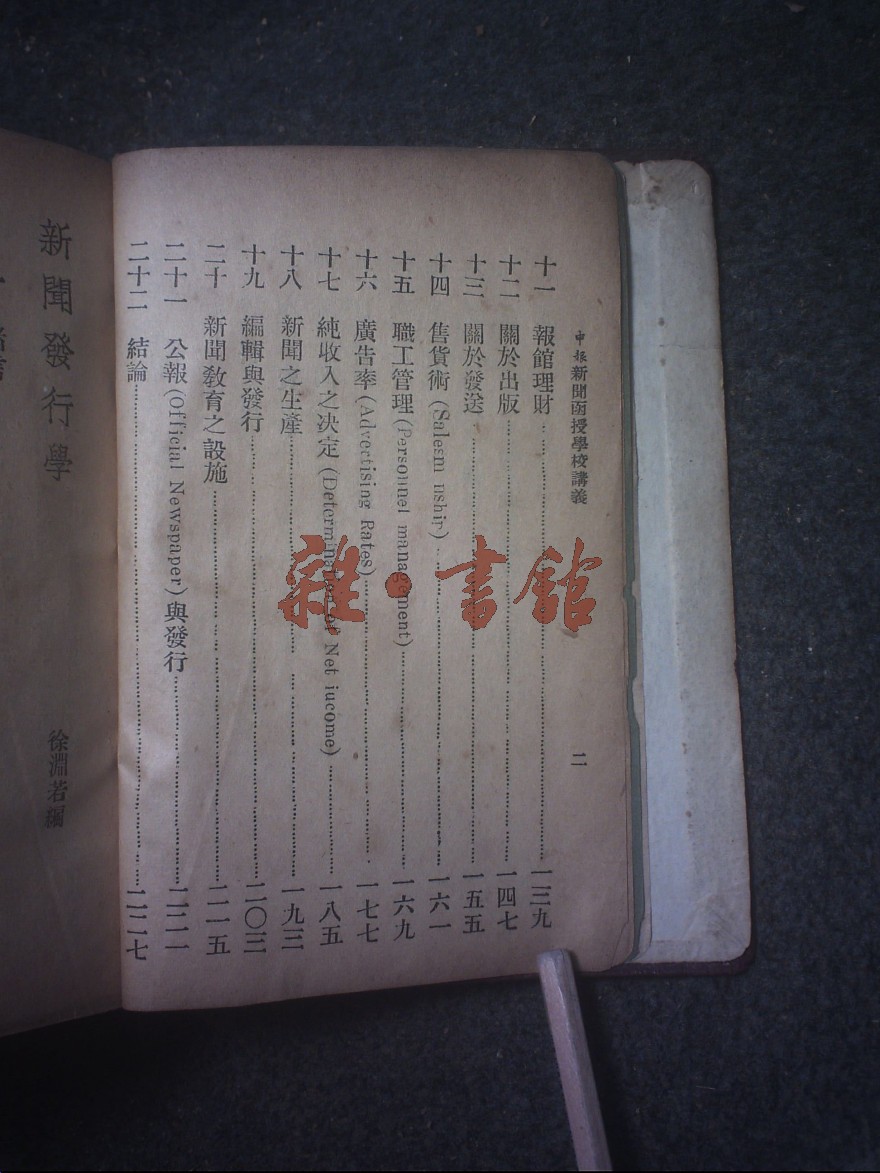 申报新聞函授學校講義 二
十一 報館理財……一三九
十二 關於出版……一四七
十三 關於發送……一五五
十四 售貨術(Salesm nship)……一六一
十五 職工管理(Personuel management)……一六九
十六 廣告率(Advertising Rates)……一七七
十七 純收入之決定(Determination of Net iucome)……一八五
十八 新聞之生產……一九三
十九 編輯與發行……二〇三
二十 新聞教育之設施……二一五
二十一 公報(Official Newspaper)與發行……二二一
二十二 結論……二二七
新聞發行學
徐淵若編
雜·書館